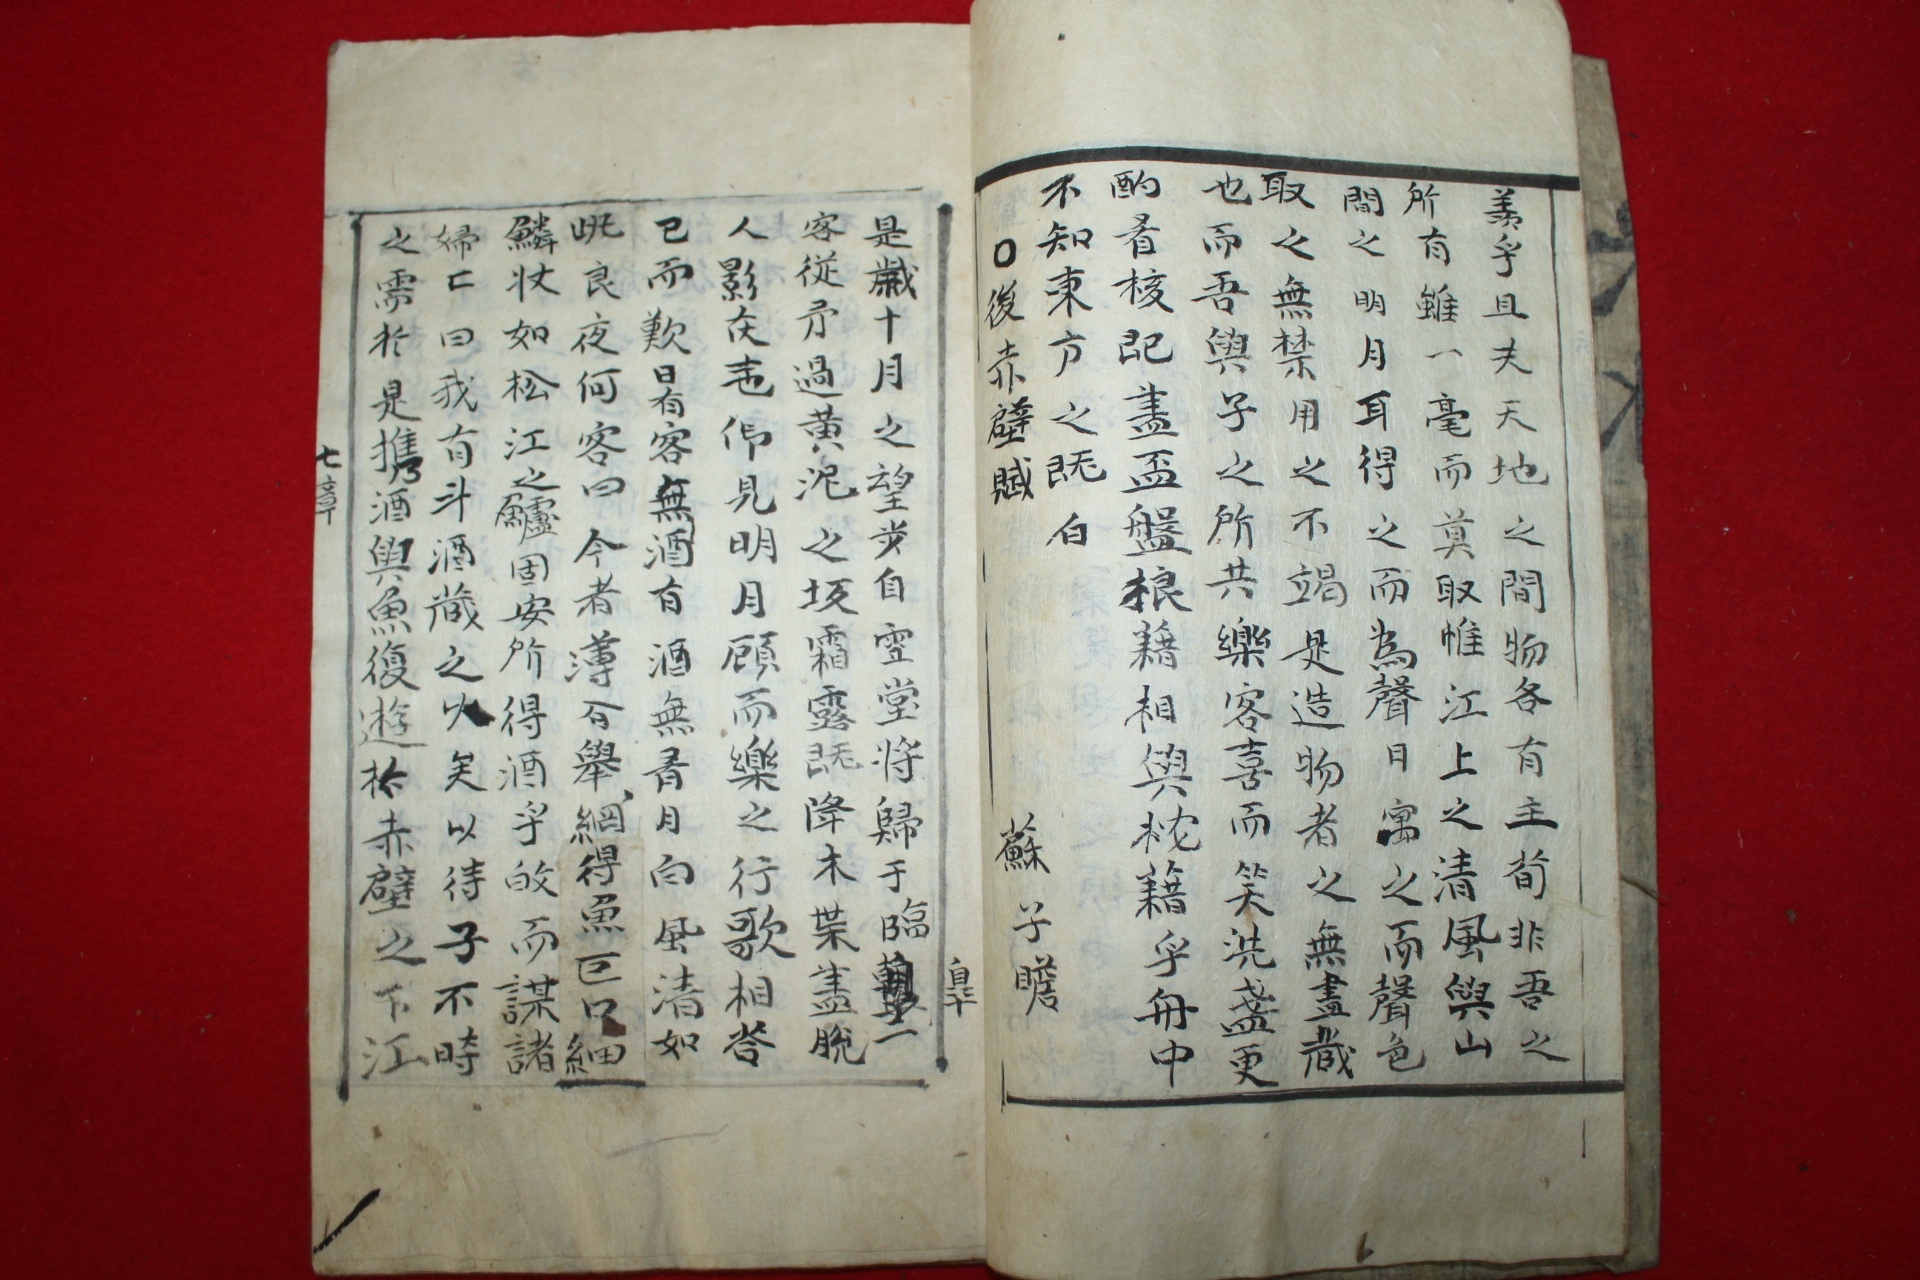 羨乎且夫天地之間物各有主苟非吾之
所有雖一毫而莫取惟江上之清風與山
間之明月耳得之而為聲目寓之而聲色
取之無禁用之不竭是造物者之無盡藏
也而吾與子之所共樂客喜而笑洗盞更
酌肴核既盡盃盤狼藉相與枕籍乎舟中
不知東方之既白
〇後赤壁賦 蘇子瞻
是歲十月之望步自雪堂將歸于臨皐二
客從予過黃泥之坂霜露既降木葉盡脫
人影在地仰見明月顧而樂之行歌相答
已而歎曰有客無酒有酒無肴月白風清如
此良夜何客曰今者薄暮舉網得魚巨口細
鱗狀如松江之鱸固安所得酒乎故而謀諸
婦亡曰我有斗酒藏之久矣以待子不時
之需於是携乃酒與魚復遊於赤壁之下江
七章